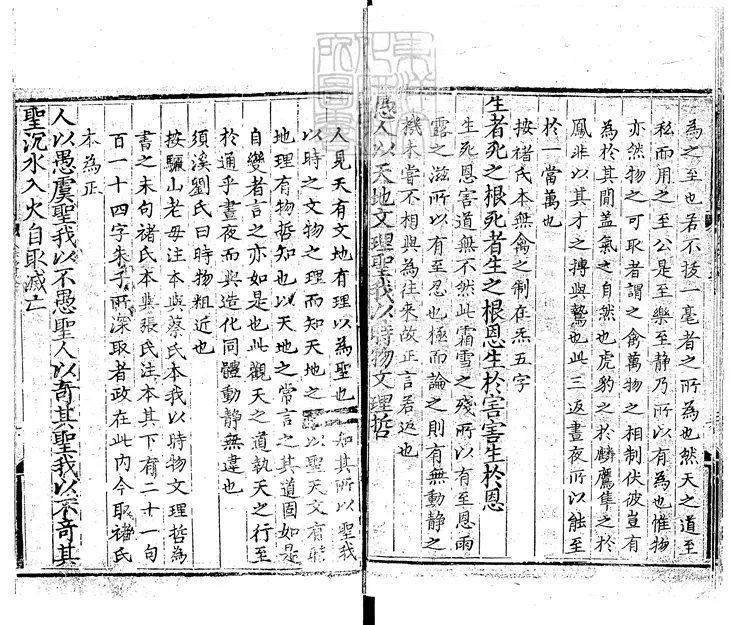 為之至也若不拔一毫者之所為也然天之道至
私而用之至公是至樂至靜乃所以有為也惟物
亦然物之可取者謂之禽萬物之相制伏彼豈有
為於其間蓋氣之自然也虎豹之於麟鷹隼之於
鳳非以其才之搏與鷙也此三返晝夜所以能至
於一當萬也
按禇氏本無禽之制在炁五字
生者死之根死者生之根恩生於害害生於恩
生死恩害道無不然此霜雪之殘所以有至恩雨
露之滋所以有至忍也極而論之則有無動静之
機未嘗不相與為往來故正言若返也
愚人以天地文理聖我以時物文理哲
人見天有文地有理以為聖也不知其所以聖我
以時之文物之理而知天地之所以聖天文有時
地理有物哲知也以天地之常言之其道固如是
自變者言之亦如是也此觀天之道執天之行至
於通乎晝夜而與造化同體動静無違也
須溪劉氏曰時物粗近也
按驪山老母注本與蔡氏本我以時物文理哲為
書之末句禇氏本與張氏注本其下有二十一句
百一十四字朱子所深取者政在此内今取禇氏
本為正
人以愚虞聖我以不愚聖人以奇其聖我以不奇其
聖沉水入火自取滅亡